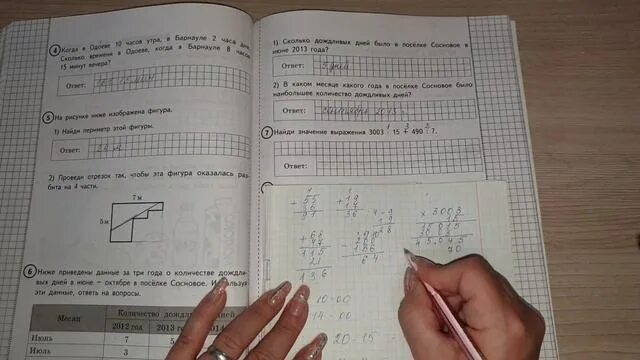 4 Когда в Одоеве 10 часов утра, в Барнауле 2 часа дня.
Сколько времени в Одоеве, когда в Барнауле 8 часов
15 минут вечера?
Ответ:
5 На рисунке ниже изображена фигура.
1) Найди периметр этой фигуры.
Ответ:
2) Проведи отрезок так, чтобы эта фигура оказалась раз-
бита на 4 части.
7 м
5 м
6 Ниже приведены данные за три года о количестве дождли-
вых дней в июне – октябре в посёлке Сосновое. Используя
эти данные, ответь на вопросы.
Месяц
Количество дней
2012 год 2013 2014
Июнь 7 5
Июль 3
1) Сколько дождливых дней было в посёлке Сосновое в
июне 2013 года?
Ответ: 5 дней
2) В каком месяце какого года в посёлке Сосновое было
наибольшее количество дождливых дней?
Ответ:
7 Найди значение выражения 3003 · 15 + 490 : 7.
Ответ:
+ 55
36
91
+ 19
17
36
× 3003
15
15015
3003
45045
70
+ 68
47
115
21
136
200
136
64
10-00
14-00
20-15